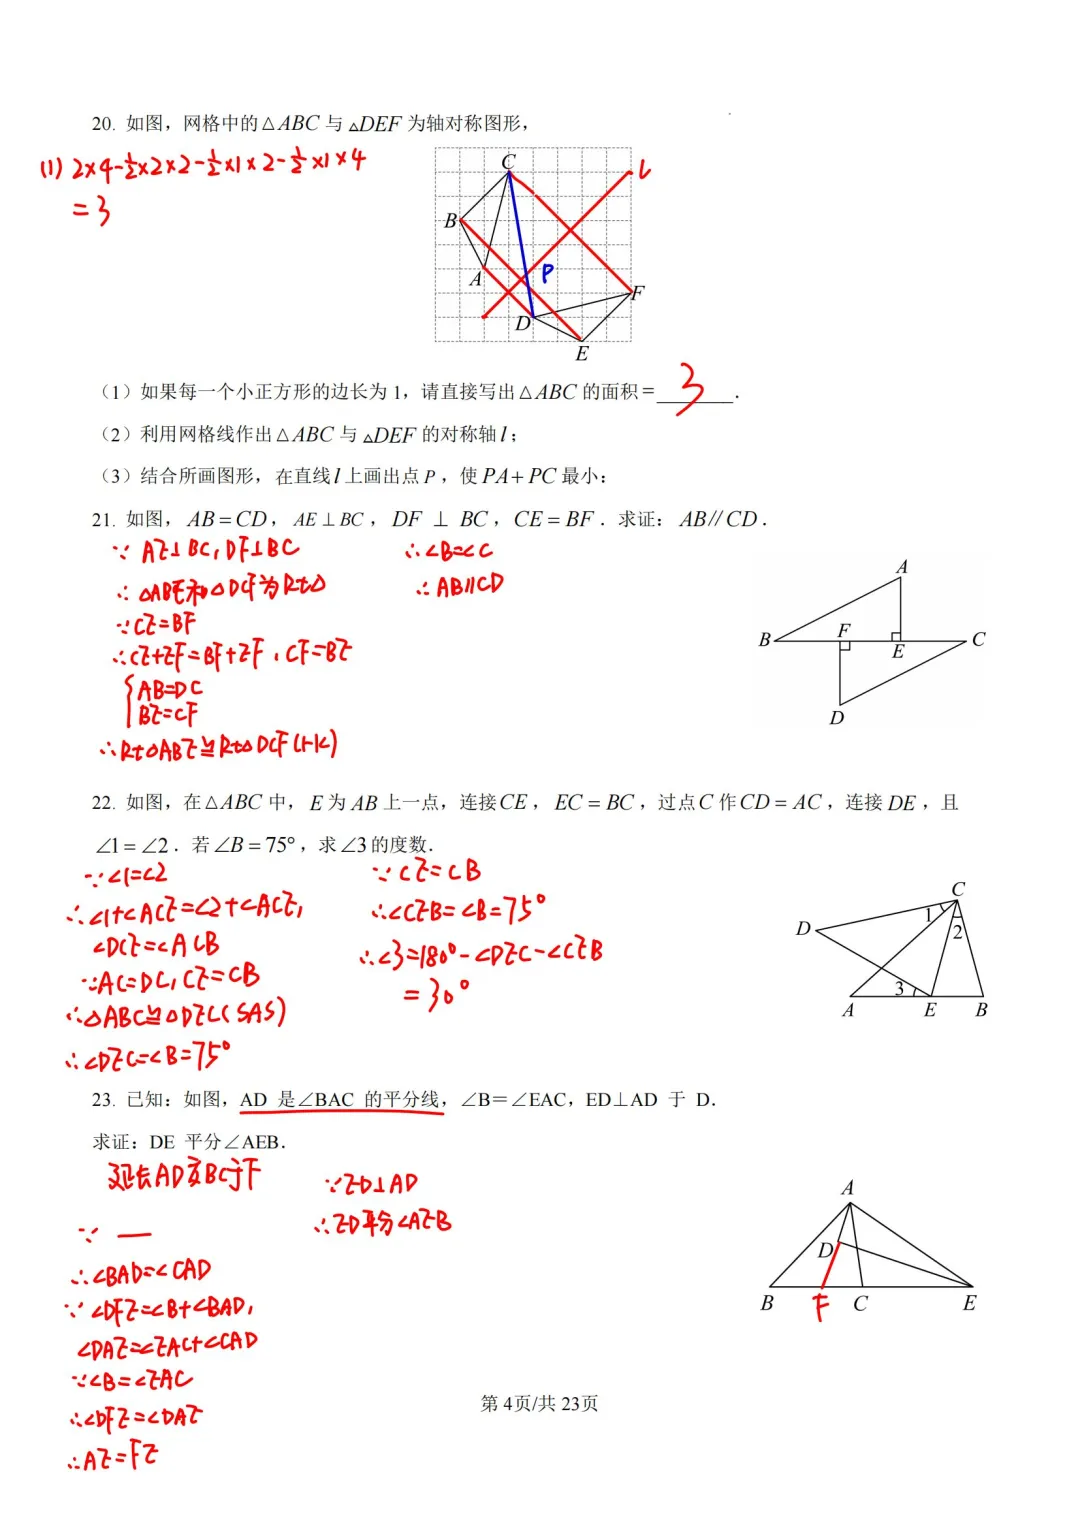 20. 如图，网格中的△ABC 与 △DEF 为轴对称图形，
(1) 2×4-½×2×2-½×1×2-½×1×4
=3
C
l
B
A
P
F
D
E
（1）如果每一个小正方形的边长为 1，请直接写出△ABC 的面积=___3___．
（2）利用网格线作出△ABC 与 △DEF 的对称轴 l；
（3）结合所画图形，在直线 l 上画出点 P，使 PA+PC 最小：
21. 如图，AB=CD，AE⊥BC，DF ⊥ BC，CE=BF．求证：AB∥CD．
∵ AE⊥BC, DF⊥BC
∴ △ABE和△DCF为Rt△
∵CE=BF
∴CE+EF=BF+EF，CF=BE
{AB=DC
BE=CF
∴Rt△ABE≌Rt△DCF(HL)
∴∠B=∠C
∴AB∥CD
A
B
F
E
C
D
22. 如图，在△ABC 中，E 为 AB 上一点，连接 CE，EC=BC，过点 C 作 CD=AC，连接 DE，且
∠1=∠2．若∠B=75°，求∠3的度数．
∵∠1=∠2
∴∠1+∠ACE=∠2+∠ACE,
∠DCE=∠ACB
∵AC=DC, CE=CB
∴△ABC≌△DEC(SAS)
∴∠DEC=∠B=75°
∵CE=CB
∴∠CEB=∠B=75°
∴∠3=180°-∠DEC-∠CEB
=30°
C
D
1
2
3
A
E
B
23. 已知：如图，AD 是∠BAC 的平分线，∠B＝∠EAC，ED⊥AD 于 D．
求证：DE 平分∠AEB．
延长AD交BC于F
∵ —
∴∠BAD=∠CAD
∵∠DFE=∠B+∠BAD,
∠DAE=∠EAC+∠CAD
∵∠B=∠EAC
∴∠DFE=∠DAE
∴AE=FE
∵ED⊥AD
∴ED平分∠AEB
A
D
B
F
C
E
第 4页/共 23页